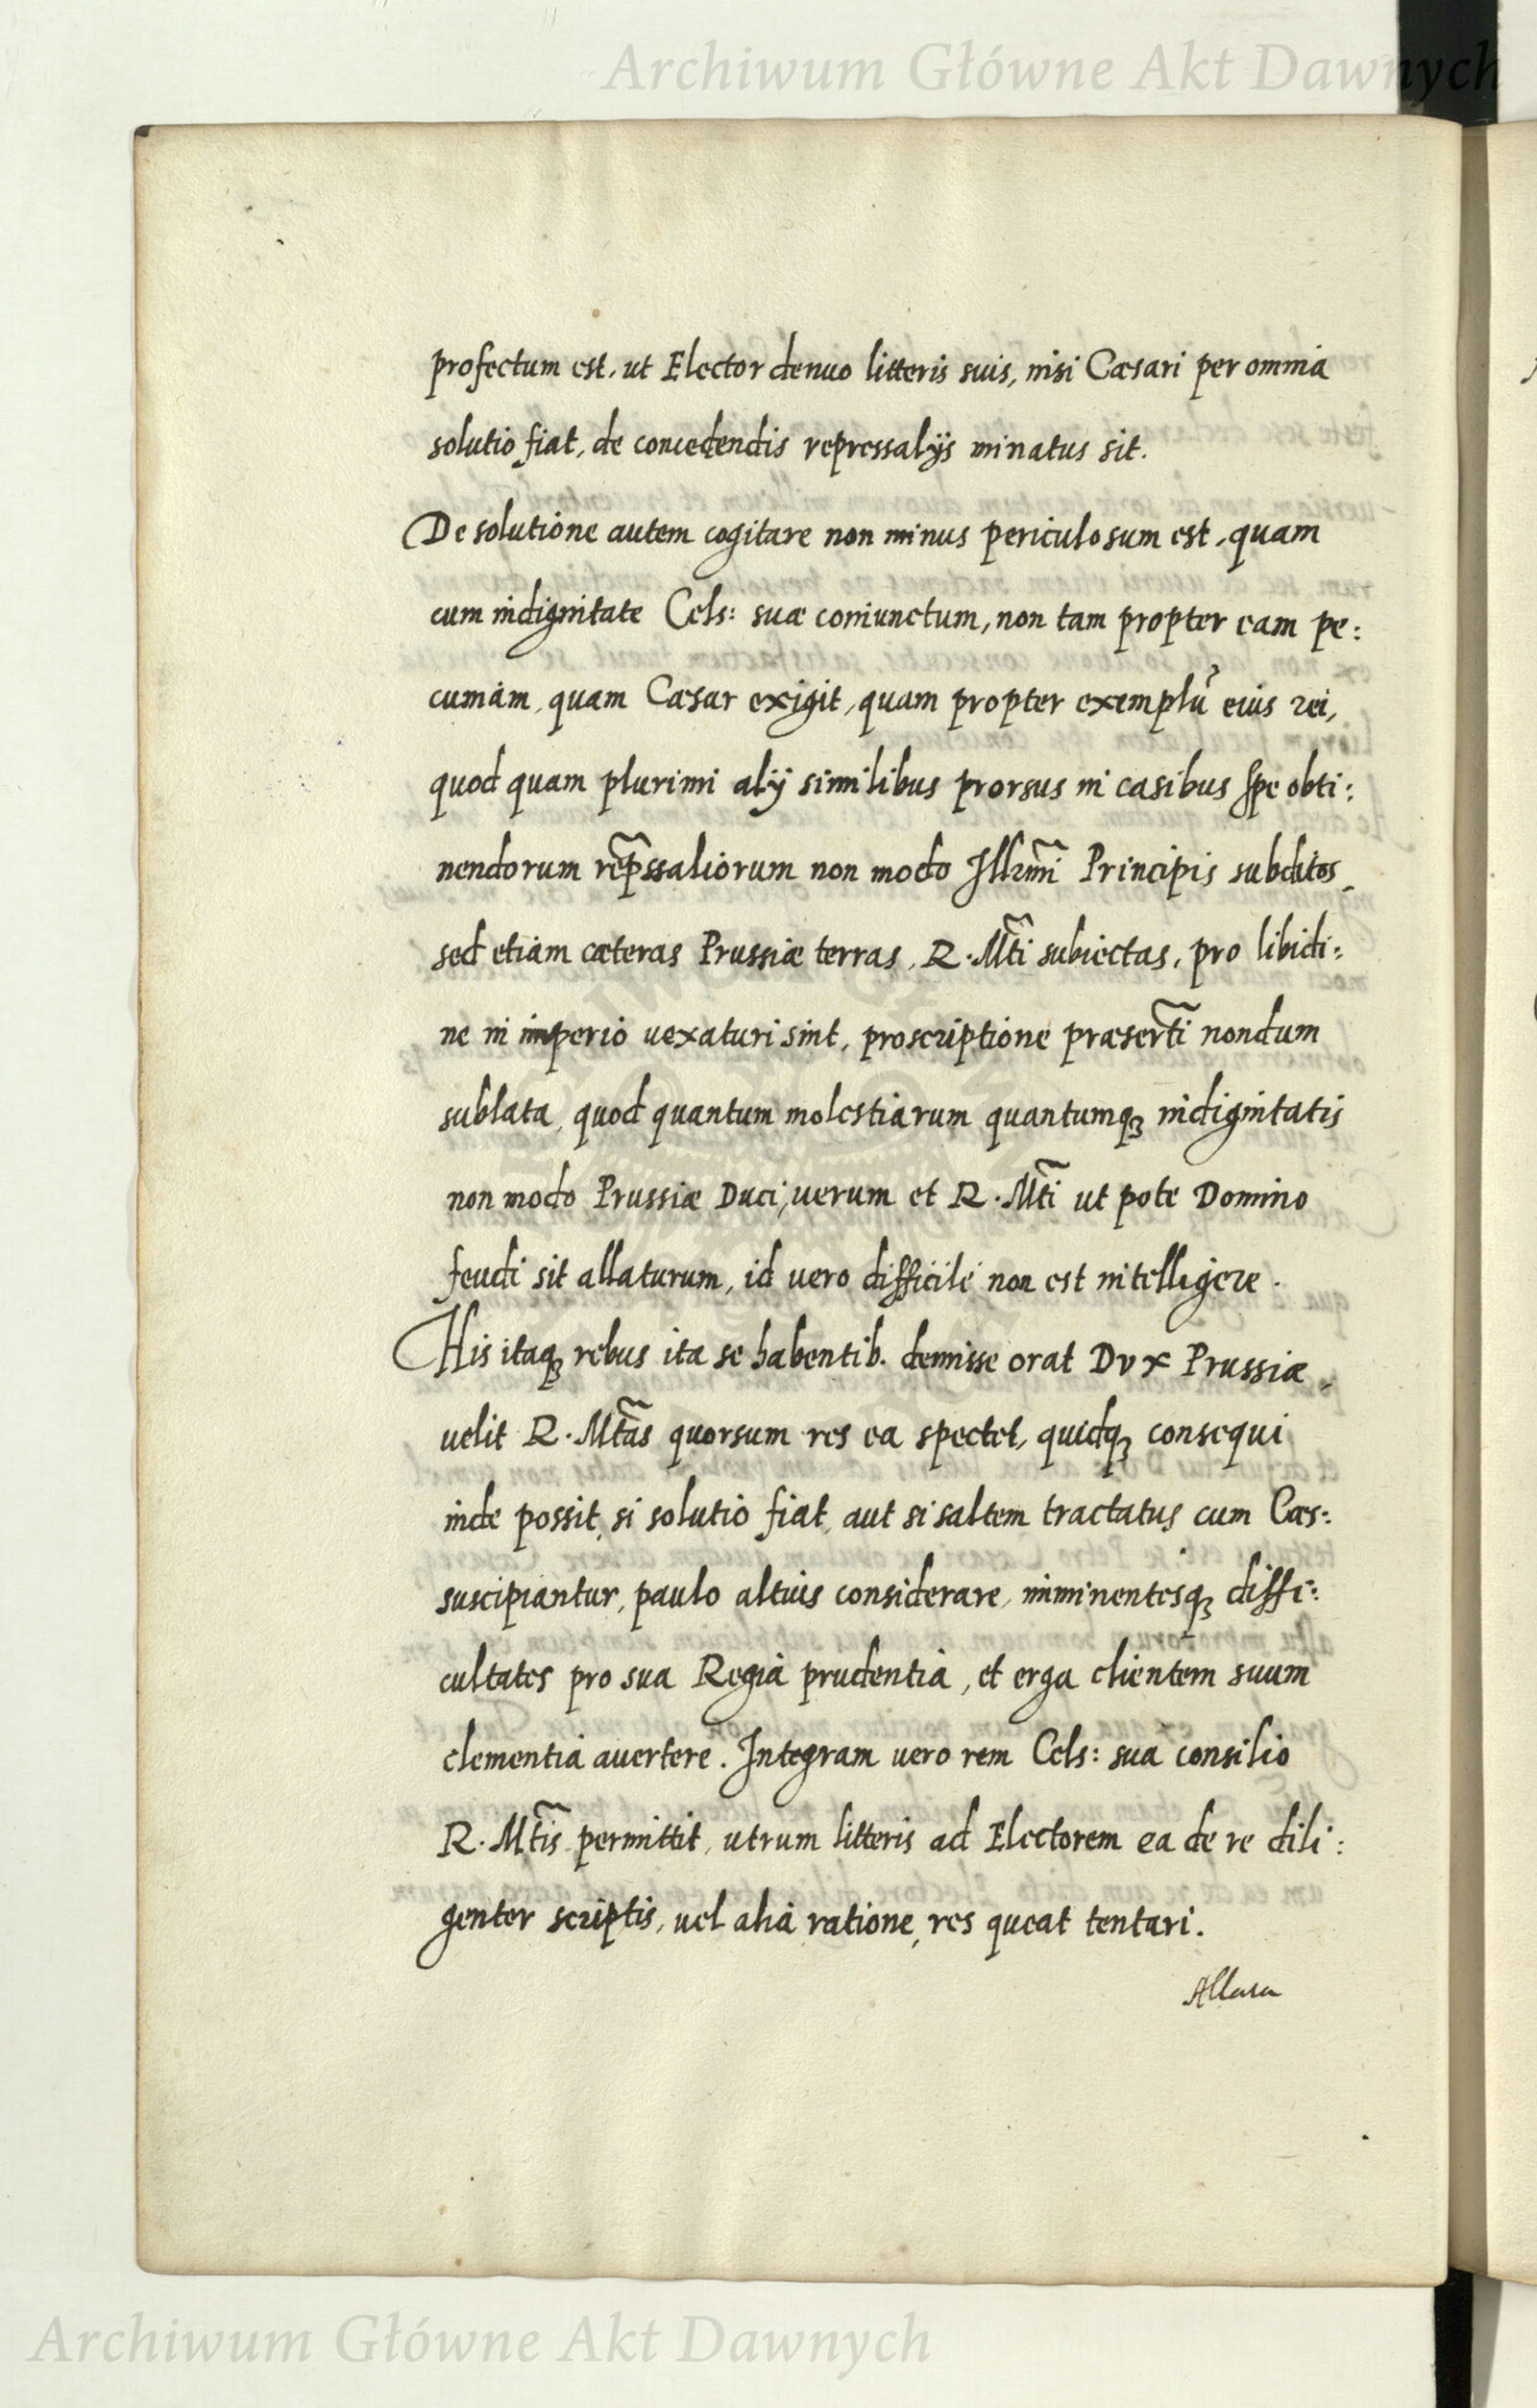 Archiwum Główne Akt Dawnych
profectum est, ut Elector denuo litteris suis, nisi Cæsari per omnia
solutio fiat, de concedendis repressalijs minatus sit.
De solutione autem cogitare non minus periculosum est, quam
cum indignitate Cels: suæ coniunctum, non tam propter eam pe:
cuniam, quam Cæsar exigit, quam propter exemplũ eius rei,
quod quam plurimi alij similibus prorsus in casibus spe obti:
nendorum rep̃ssaliorum non modo Illmĩ Principis subditos,
sed etiam cæteras Prussiæ terras, R. Mtĩ subiectas, pro libidi:
ne in imperio uexaturi sint, proscriptione præsertĩ nondum
sublata, quod quantum molestiarum quantumqꝫ indignitatis
non modo Prussiæ Duci, uerum et R. Mtĩ ut pote Domino
feudi sit allaturum, id vero difficile non est intelligere.
His itaqꝫ rebus ita se habentib. demisse orat Dvx Prussiæ,
uelit R. Mtãs quorsum res ea spectet, quidqꝫ consequi
inde possit, si solutio fiat, aut si saltem tractatus cum Cæs:
suscipiantur, paulo altius considerare, imminentesqꝫ diffi:
cultates pro sua Regia prudentia, et erga clientem suum
clementia auertere. Integram uero rem Cels: sua consilio
R. Mtĩs permittit, utrum litteris ad Electorem ea de re dili:
genter scriptis, uel alia ratione, res queat tentari.
Allata
Archiwum Główne Akt Dawnych